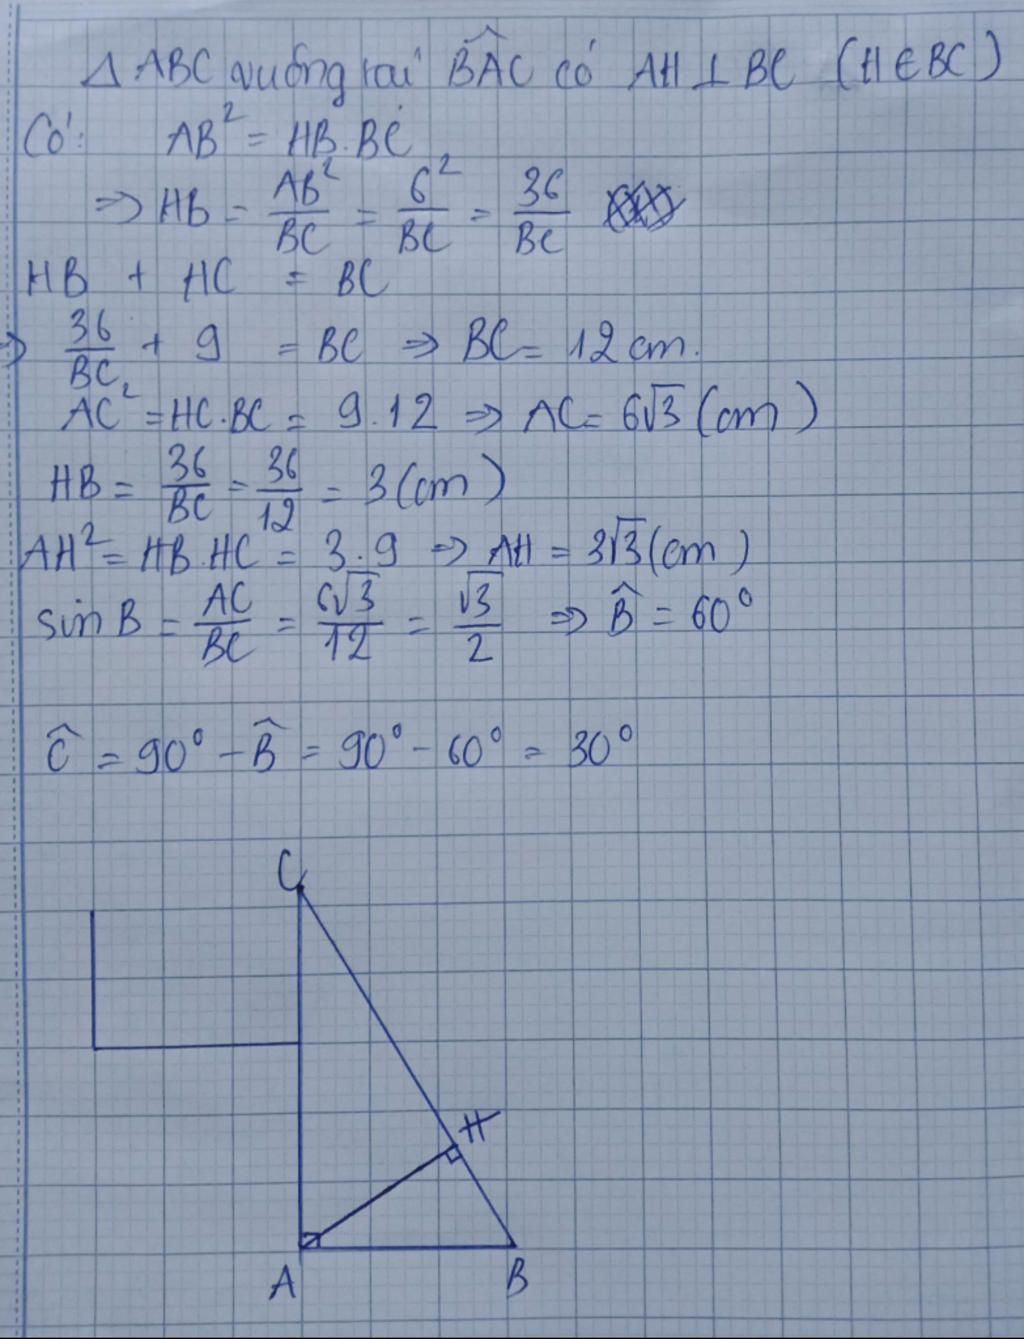 Δ ABC vuông tại BÂC có AH ⊥ BC (H ∈ BC)
Có: AB² = HB.BC
=> HB = AB²/BC = 6²/BC = 36/BC
HB + HC = BC
=> 36/BC + 9 = BC => BC = 12 cm.
AC² = HC.BC = 9.12 => AC = 6√3 (cm)
HB = 36/BC = 36/12 = 3 (cm)
AH² = HB.HC = 3.9 => AH = 3√3 (cm)
sin B = AC/BC = 6√3/12 = √3/2 => B̂ = 60°
Ĉ = 90° - B̂ = 90° - 60° = 30°
C
H
A B